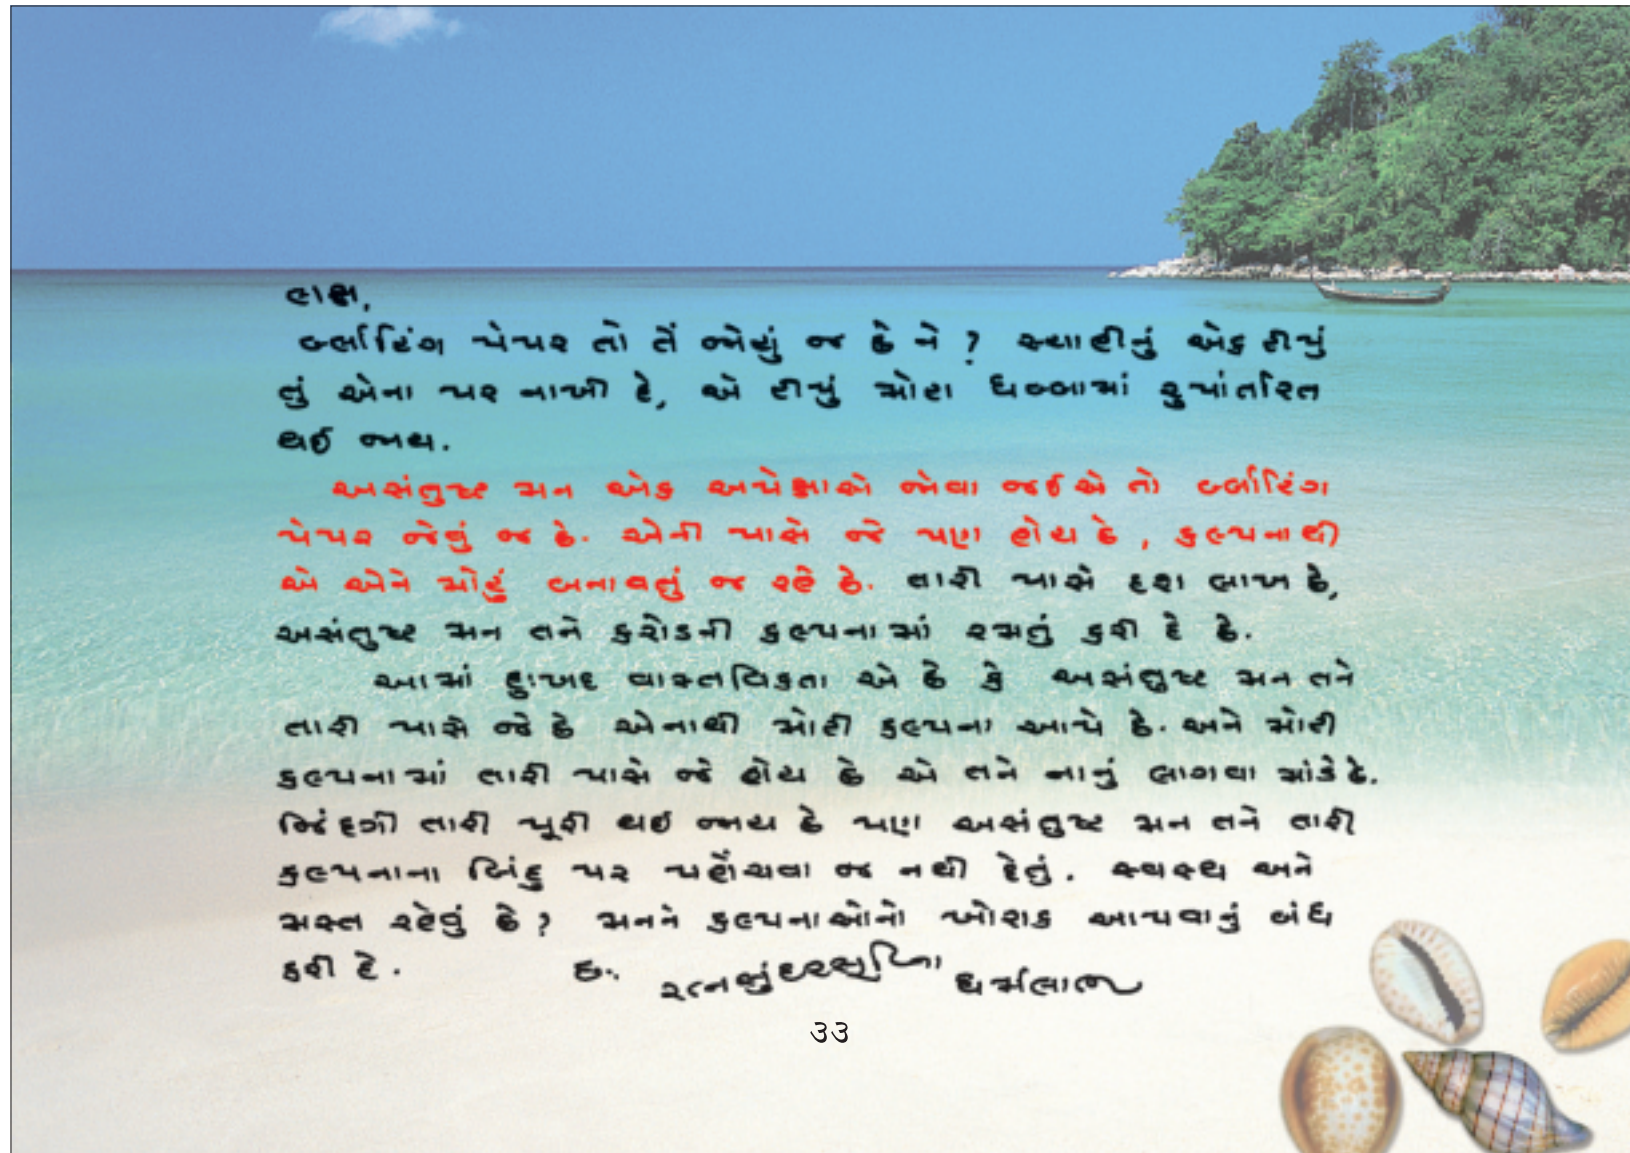 લક્ષ,
બ્લોટિંગ પેપર તો તેં જોયું જ છે ને ? સ્યાહીનું એક ટીપું
તું એના પર નાખી દે, એ ટીપું મોટા ધબ્બામાં રુપાંતરિત
થઈ જાય.
અસંતુષ્ટ મન એક અપેક્ષાએ જોવા જઈએ તો બ્લોટિંગ
પેપર જેવું જ છે. એની પાસે જે પણ હોય છે, કલ્પનાથી
એ એને મોટું બનાવતું જ રહે છે. તારી પાસે દશ લાખ છે,
અસંતુષ્ટ મન તને કરોડની કલ્પનામાં રમતું કરી દે છે.
આમાં દુઃખદ વાસ્તવિકતા એ છે કે અસંતુષ્ટ મન તને
તારી પાસે જે છે એનાથી મોટી કલ્પના આપે છે. અને મોટી
કલ્પનામાં તારી પાસે જે હોય છે એ તને નાનું લાગવા માંડે છે.
જિંદગી તારી પૂરી થઈ જાય છે પણ અસંતુષ્ટ મન તને તારી
કલ્પનાના બિંદુ પર પહોંચવા જ નથી દેતું. સ્વસ્થ અને
મસ્ત રહેવું છે? મનને કલ્પનાઓનો ખોરાક આપવાનું બંધ
કરી દે. દ. રત્નસુંદરસૂરિના ધર્મલાભ
૩૩